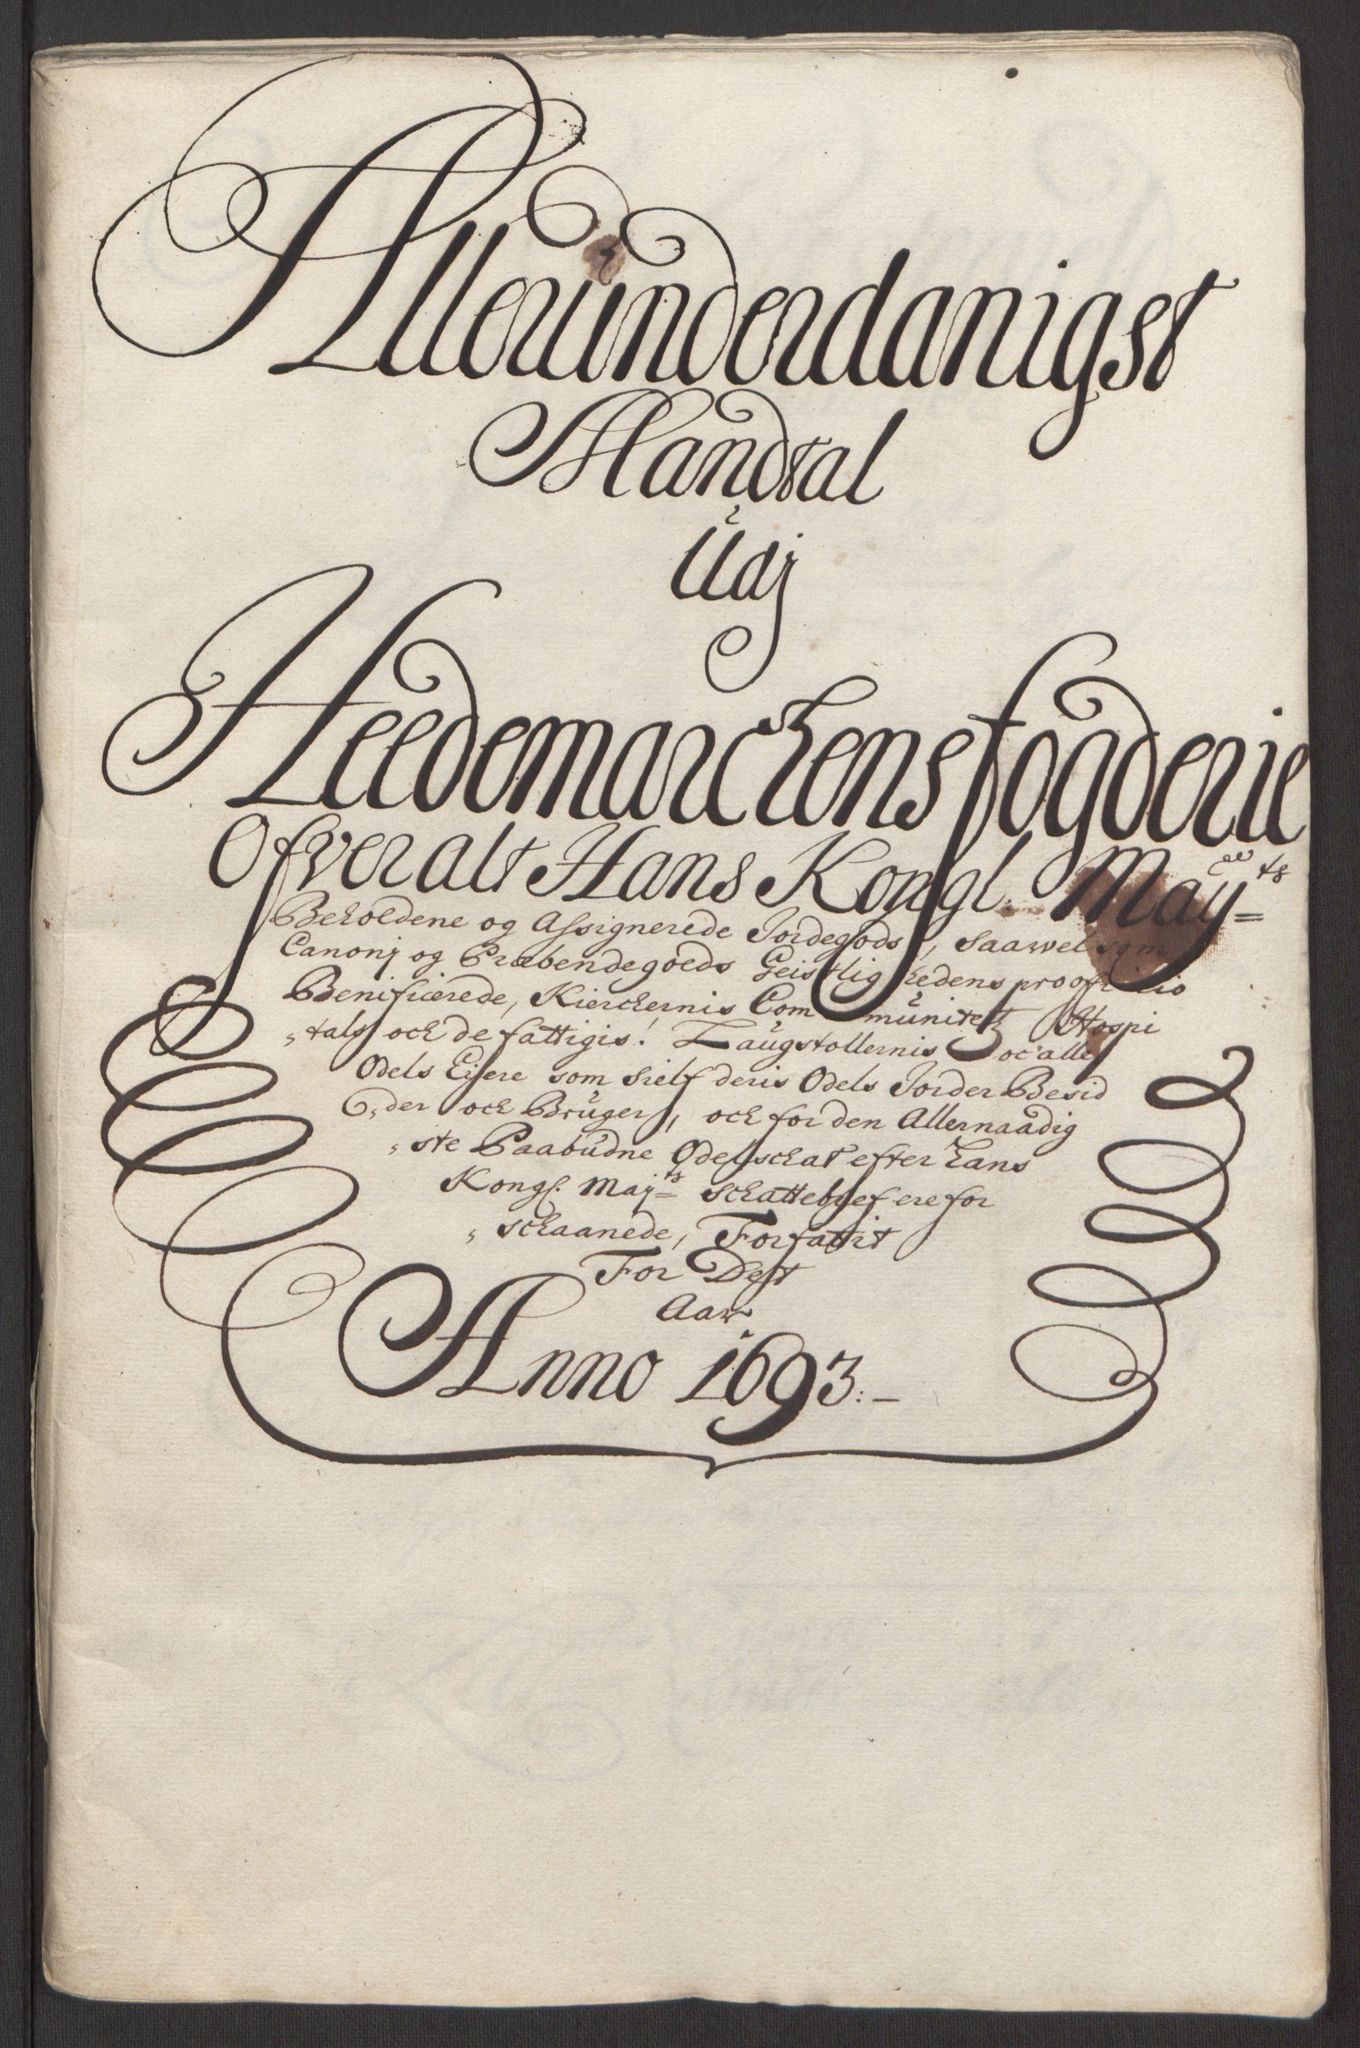 Allerunderdanigst
Mandtal
Udj
Heedemarckens fogderie
Ofver alt Hans Kongl. May:ts
Beholdene og Assignerede Jordegods, saawel som
Canonj og Præbendegoeds Geistlighedens proofstio
Benificerede, Kierckernis Communitetz Hospi
"tals, ock de fattigis. Laugstollernis oc alle
Odels Eijere som sielf deris Odels Jorder Besid
"der ock Bruger, ock for den Allernaadig
"ste Paabudne Odelschat efter hans
Kongl. Maj:ts Schattebref ere for
"schaanede, Forfattit
For Dest
Aar
Anno 1693.-